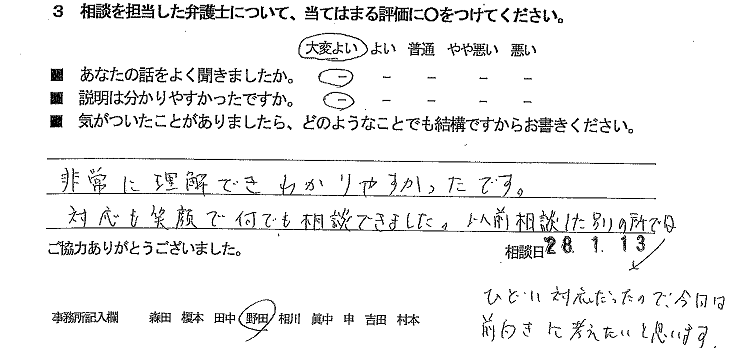 3 相談を担当した弁護士について、当てはまる評価に○をつけてください。
大変よい よい 普通 やや悪い 悪い
■ あなたの話をよく聞きましたか。 − − − − −
■ 説明は分かりやすかったですか。 − − − − −
■ 気がついたことがありましたら、どのようなことでも結構ですからお書きください。
非常に理解できわかりやすかったです。
対応も笑顔で何でも相談できました。以前相談した別の所では
ご協力ありがとうございました。 相談日 28. 1. 13
ひどい対応だったので、今日は
前向きに考えたいと思います。
事務所記入欄 森田 榎本 田中 野田 相川 眞中 申 吉田 村本